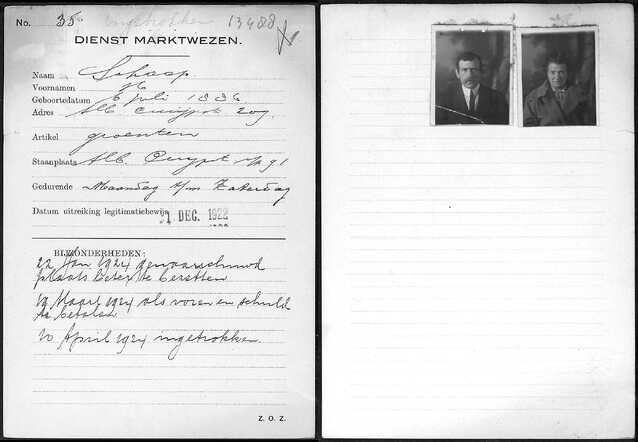 No. 35 ingetrokken 13488
DIENST MARKTWEZEN.
Naam Schaap.
Voornamen
Geboortedatum 6 juli 1886
Adres Alb Cuypst 209.
Artikel groenten
Staanplaats Alb. Cuypst 91
Gedurende Maandag t/m Zaterdag
Datum uitreiking legitimatiebewijs 1 DEC. 1922
BIJZONDERHEDEN:
22 Jan 1924 gewaarschuwd
plaats beter te bezetten
19 Maart 1924 als voren en schuld
te betalen
10 April 1924 ingetrokken.
Z. O. Z.